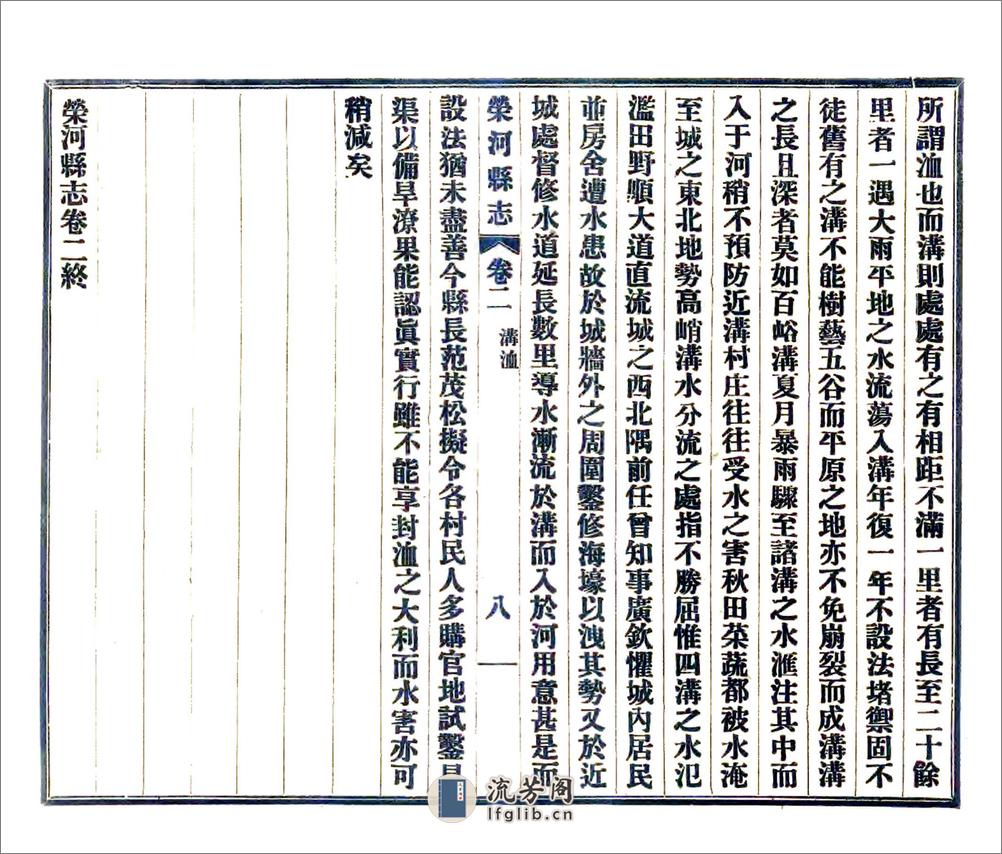 所謂洫也而溝則處處有之有相距不滿一里者有長至二十餘
里者一遇大雨平地之水流蕩入溝年復一年不設法堵禦固不
徒舊有之溝不能樹藝五谷而平原之地亦不免崩裂而成溝溝
之長且深者莫如百峪溝夏月暴雨驟至諸溝之水滙注其中而
入于河稍不預防近溝村庄往往受水之害秋田菜蔬都被水淹
至城之東北地勢高峭溝水分流之處指不勝屈惟四溝之水氾
濫田野順大道直流城之西北隅前任曾知事廣欽懼城內居民
並房舍遭水患故於城牆外之周圍鑿修海壕以洩其勢又於近
城處督修水道延長數里導水漸流於溝而入於河用意甚是而
榮河縣志 卷二 溝洫 八
設法猶未盡善今縣長范茂松擬令各村民人多購官地試鑿
渠以備旱潦果能認眞實行雖不能享封洫之大利而水害亦可
稍減矣
榮河縣志卷二終
流芳閣
lfglib.cn